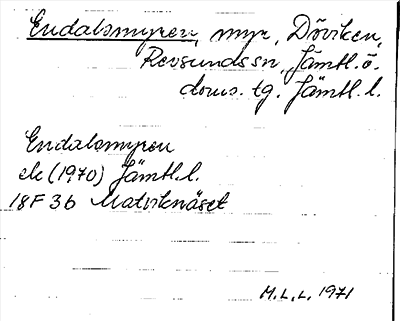 Endalsmyren, myr, Döviken,
Revsunds sn, Jämtl. ö.
doms. tg. Jämtl. l.
Endalsmyren
ek (1970) Jämtl. l.
18F 3b Mattiknäset
M. L. L. 1971